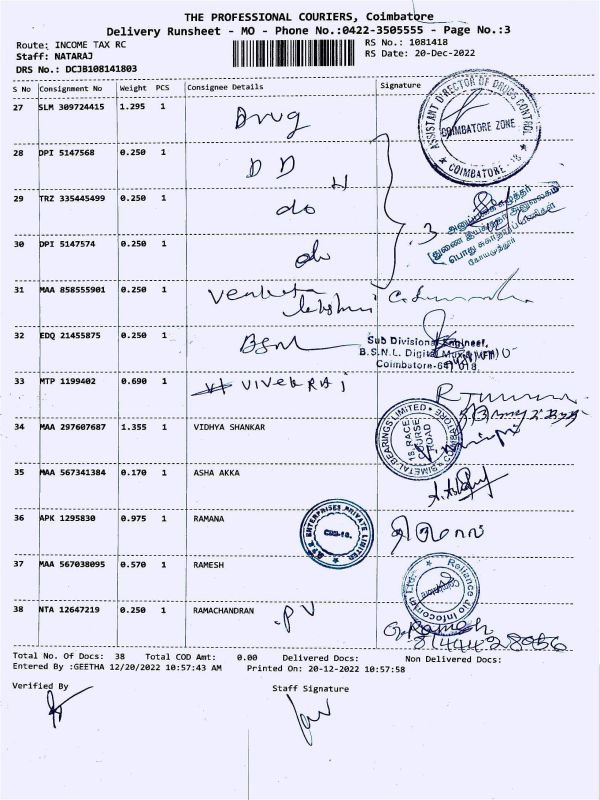 THE PROFESSIONAL COURIERS, Coimbatore
Delivery Runsheet - MO - Phone No.:0422-3505555 - Page No.:3
Route: INCOME TAX RC RS No.: 1081418
Staff: NATARAJ RS Date: 20-Dec-2022
DRS No.: DCJB108141803
S No Consignment No Weight PCS Consignee Details Signature
27 SLM 309724415 1.295 1 Drug
ASSISTANT DIRECTOR OF DRUGS CONTROL
COIMBATORE ZONE
★ COIMBATORE - 18 ★
28 DPI 5147568 0.250 1 D D H
29 TRZ 335445499 0.250 1 do
30 DPI 5147574 0.250 1 do 3
பொது சுகாதார
கோயமுத்தூர்
31 MAA 858555901 0.250 1 Venkata
lakshmi
32 EDQ 21455875 0.250 1 BSNL
Sub Divisional Engineer,
B.S.N.L. Digital Mux
Coimbatore-641 018.
33 MTP 1199402 0.690 1 VIVEKRAj
34 MAA 297607687 1.355 1 VIDHYA SHANKAR
BIMETAL BEARINGS LIMITED
18, RACE
COURSE
ROAD
COIMBATORE
35 MAA 567341384 0.170 1 ASHA AKKA
36 APK 1295830 0.975 1 RAMANA
ENTERPRISES PRIVATE LIMITED
CBE-18.
37 MAA 567038095 0.570 1 RAMESH
Reliance Jio Infocomm Ltd.
38 NTA 12647219 0.250 1 RAMACHANDRAN PV
G. Ramesh
Total No. Of Docs: 38 Total COD Amt: 0.00 Delivered Docs: Non Delivered Docs:
Entered By :GEETHA 12/20/2022 10:57:43 AM Printed On: 20-12-2022 10:57:58
Verified By Staff Signature